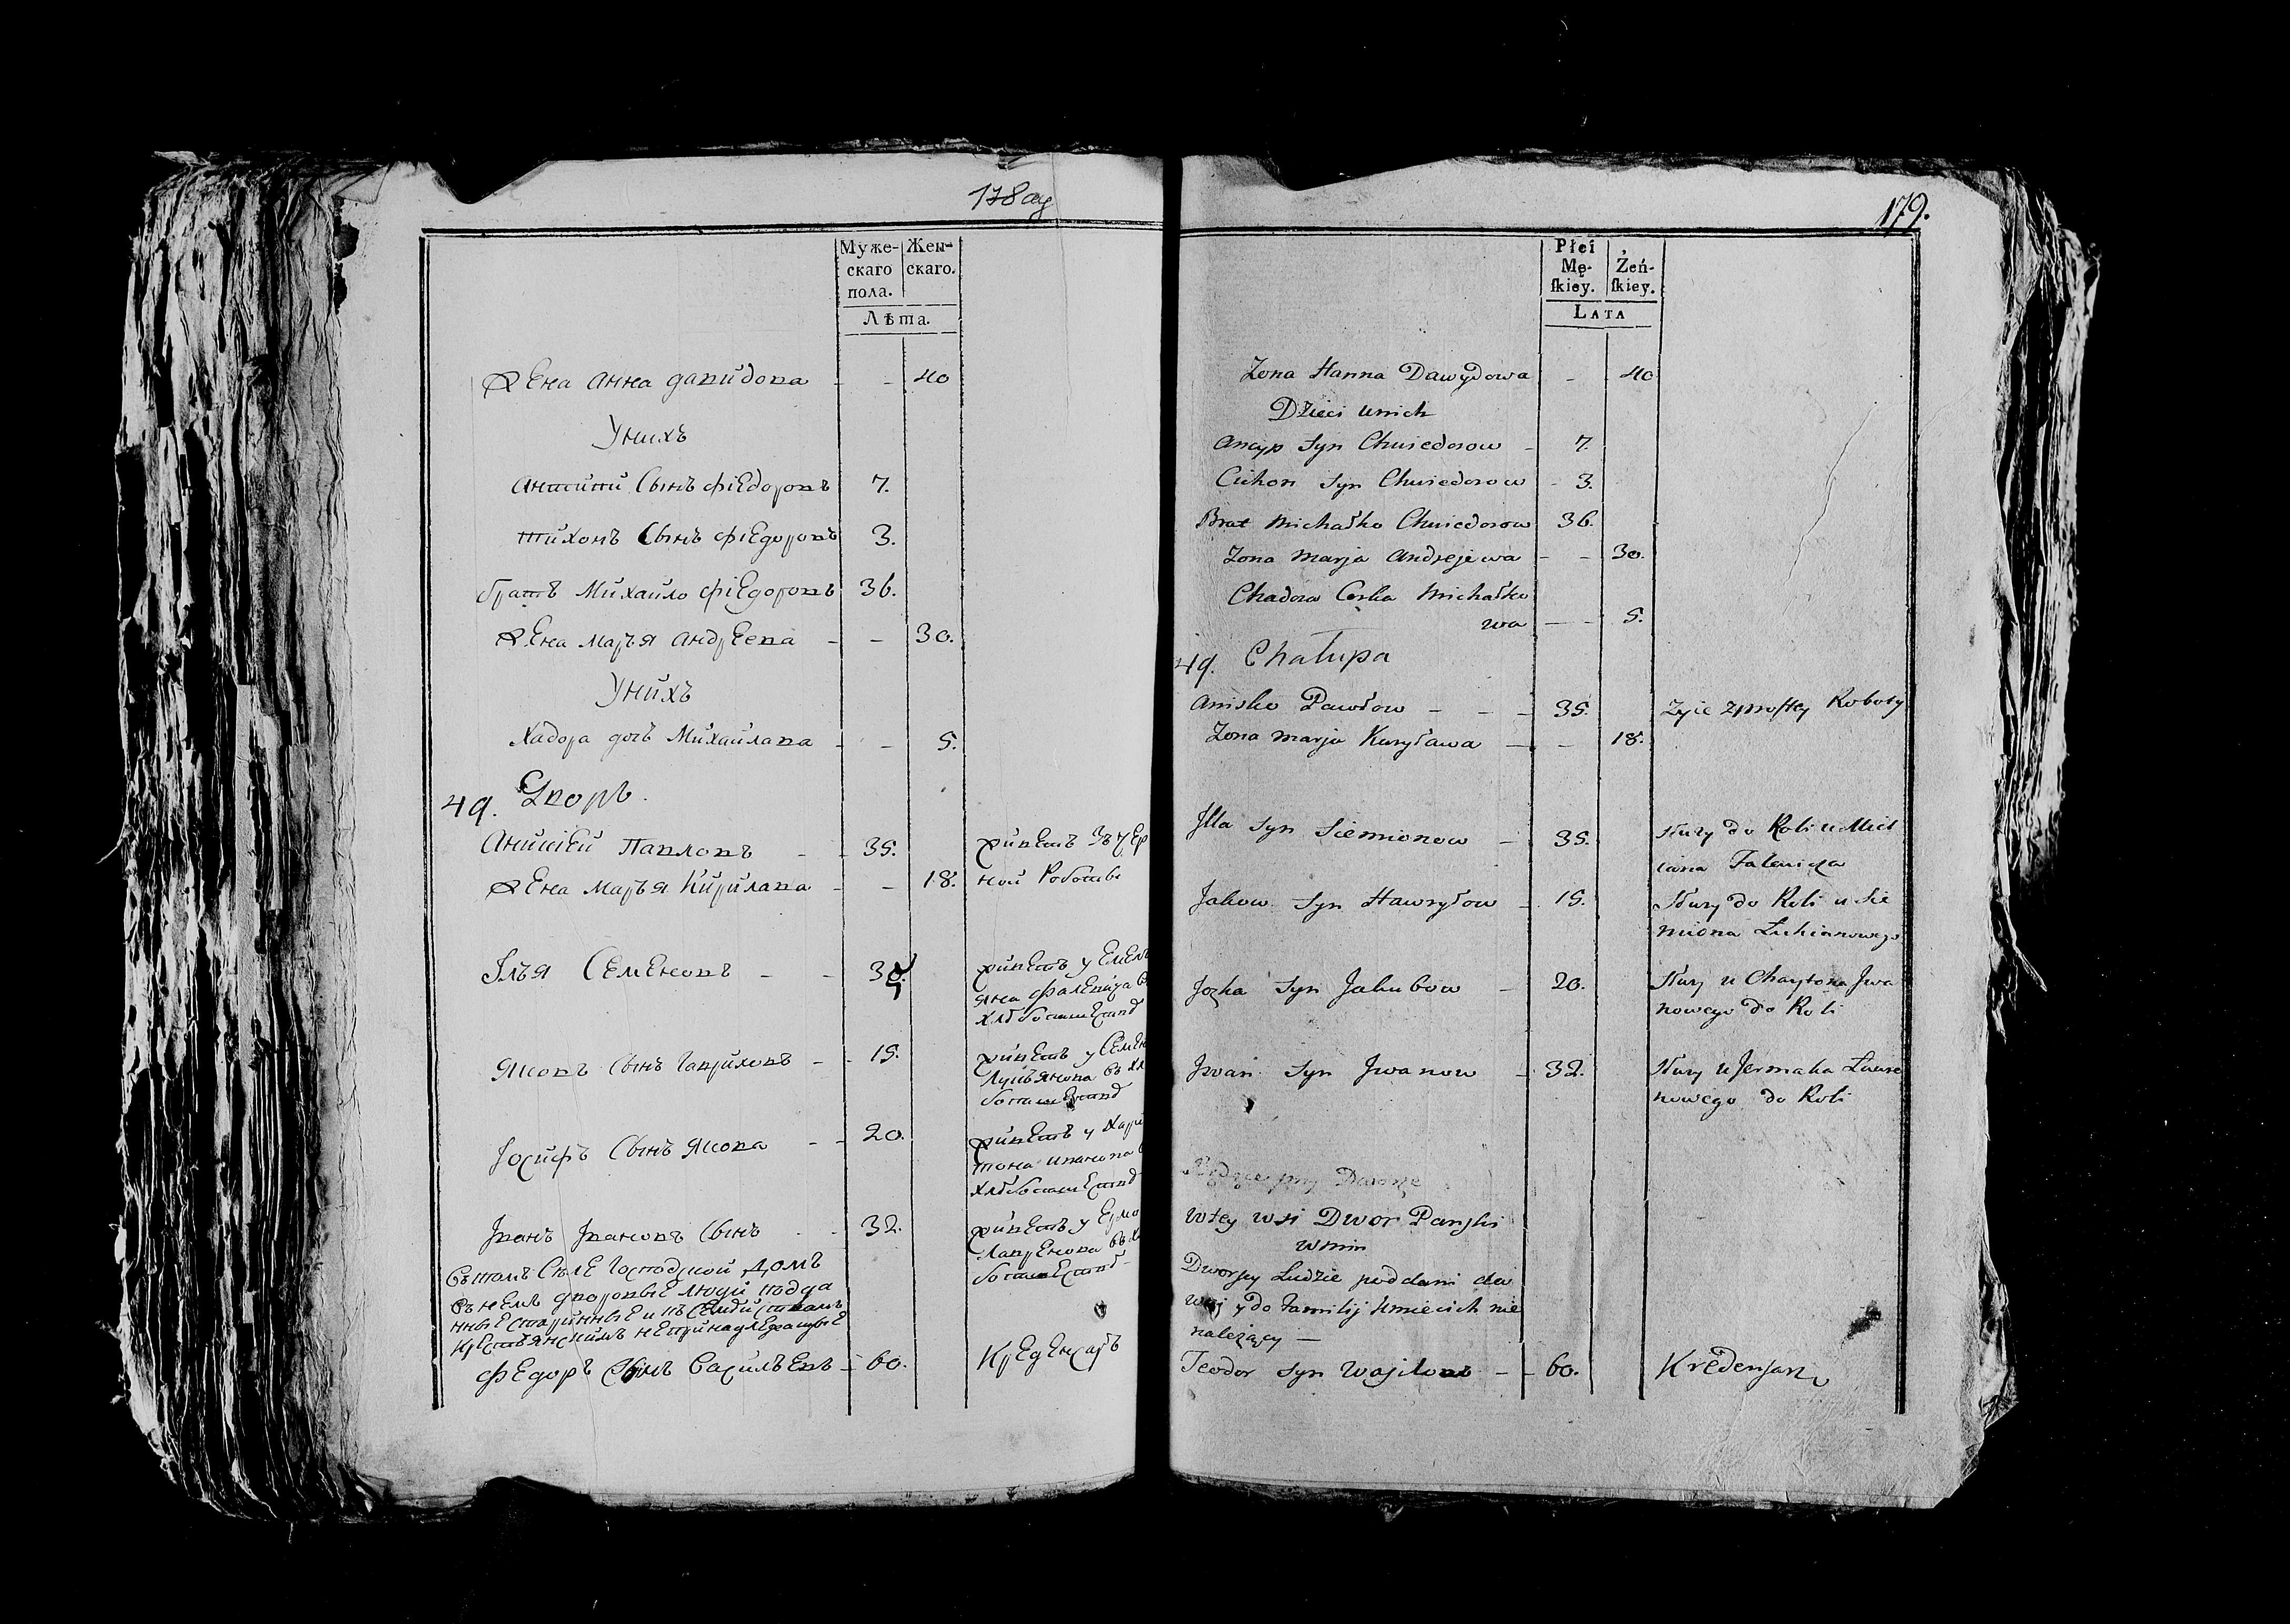 178 об
Муже-
скаго
пола.
Жен-
скаго.
Лѣта.
жена анна давидова - - 40
Унихъ
антипи Сынъ фіедоровъ 7.
тихонъ Сынъ фіедоровъ 3.
братъ Михаило фіедоровъ 36.
жена марья андреева - - 30.
Унихъ
Хадора дочь Михаилава - - 5.
49. Дворъ.
Анисіеи Павловъ - - 35. живетъ зъ чер
жена марья Кирилава - - 18. ной Работы
Илья Семеновъ - - 35. живетъ у Емель
яна фалевича в
хлебопашестве
Яковъ Сынъ Гавриловъ - - 15. живетъ у Семе
Лукьянова въ хл
бопашестве
Іосифъ Сынъ Якова - - 20. живетъ у Хари
тона иванова в
хлебопашестве
Іванъ Івановъ Сынъ - - 32. живетъ у Ермо
Лавренова въ х
бопашестве
Вътомъ Селе Господской Домъ
въ немъ дворовые люди подда
нные старинные и къ Семействамъ
крестьянскимъ непринадлежащые
Федоръ Сынъ Васильевъ - 60. Креденсаръ
179.
Płci
Mę-
ſkiey.
Żeń-
ſkiey.
LATA
Zona Hanna Dawydowa - - 40
Dzieci unich
Ancyp Syn Chwiedorow - 7.
Cichon Syn Chwiedorow - 3.
Brat Michałko Chwiedorow 36.
Zona Marja Andrejewa - - 30.
Chadora Corka Michałko
wa - - 5.
49. Chałupa
Anisko Pawłow - - - 35. Zyie zprostey Roboty
Zona Marja Kuryława - - 18.
Jlla Syn Siemionow - 35. Słuzy do Roli u Miel
iana Falewicza
Jakow Syn Hawryłow - 15. Słuzy do Roli u Sie
miona Łukianowego
Jozka Syn Jakubow - 20. Słuzy u Charytona Jwa
nowego do Roli
Jwan Syn Jwanow - 32. Słuzy u Jermaka Ławre
nowego do Roli
przy Dworze
Wtey wsi Dwor Panski
wnim
Dworscy Ludzie poddani da
wni y do Familij Kmiecich nie
nalezący —
Teodor Syn Wasilow - - 60. Kredensarz